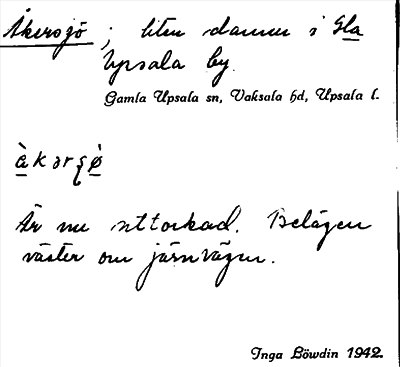 Åkersjö ; liten damm i Gla
Upsala by.
Gamla Upsala sn, Vaksala hd, Upsala l.
àkərʂø̀
Är nu uttorkad. Belägen
väster om järnvägen.
Inga Löwdin 1942.